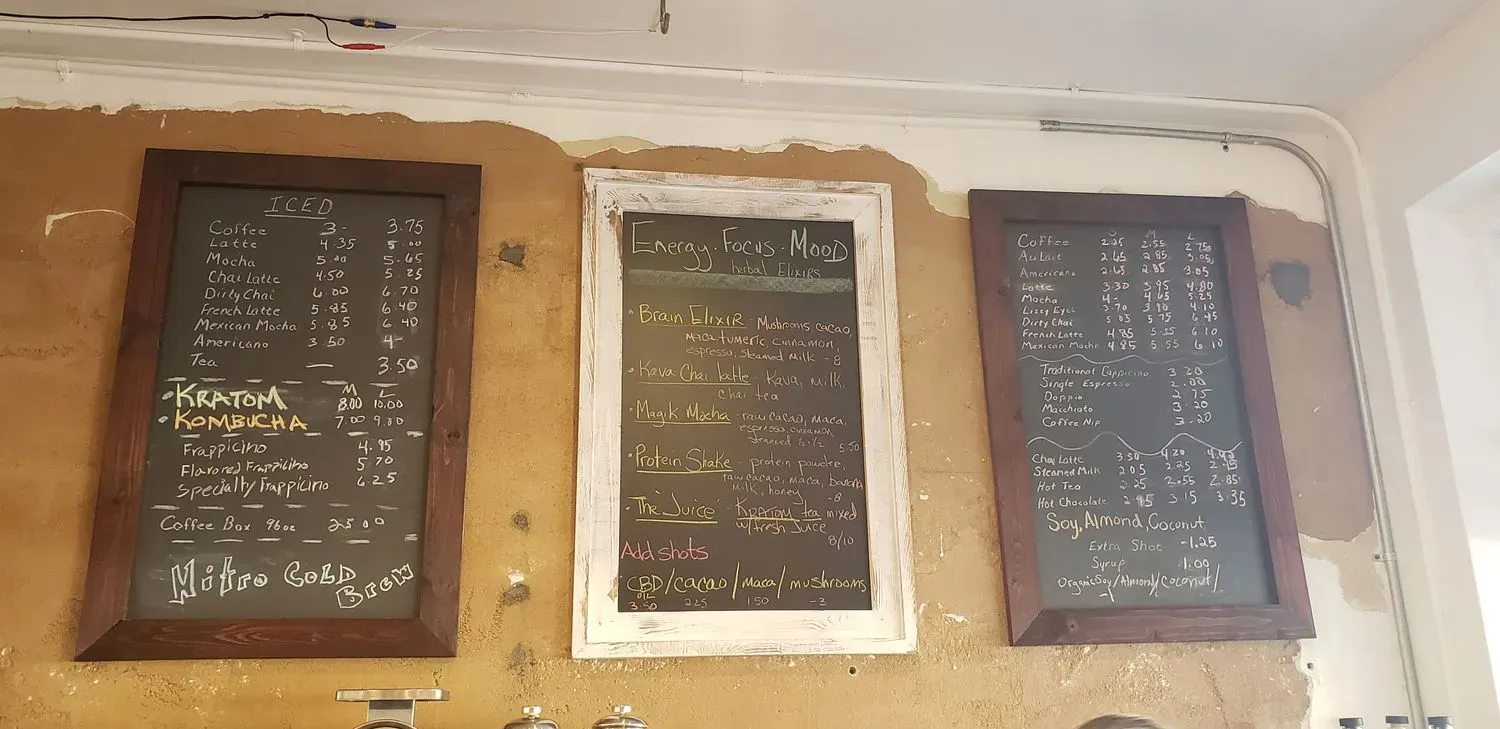 ICED
Coffee 3- 3.75
Latte 4.35 5.00
Mocha 5.00 5.65
Chai Latte 4.50 5.25
Dirty Chai 6.00 6.70
French Latte 5.85 6.40
Mexican Mocha 5.85 6.40
Americano 3.50 4-
Tea — 3.50
M L
• KRATOM 8.00 10.00
• KOMBUCHA 7.00 9.00
Frappicino 4.95
Flavored Frappicino 5.70
Specialty Frappicino 6.25
Coffee Box 96oz 25 00
Nitro COLD
BREW
Energy • Focus • MOOD
herbal ELIXIRS
• Brain ELIXIR - Mushrooms cacao,
maca tumeric cinnamon,
espresso, steamed milk - 8
• Kava Chai latte - Kava, milk,
chai tea
• Magik Mocha - raw cacao, maca,
espresso, cinnamon,
steamed ½ • ½ 5.50
• Protein Shake - protein powder,
raw cacao, maca, banana
milk, honey -8
• The 'Juice' - KRATOM tea mixed
w/fresh Juice
8/10
Add shots
CBD/cacao/maca/mushrooms
OIL
3.50 2.25 1.50 -3
S M L
Coffee 2.25 2.55 2.75
Au Lait 2.65 2.85 3.05
Americano 2.65 2.85 3.05
Latte 3.30 3.95 4.80
Mocha 4- 4.65 5.25
Lizzy Eyes 3.70 3.90 4.10
Dirty Chai 5.05 5.75 6.45
French Latte 4.85 5.55 6.10
Mexican Mocha 4.85 5.55 6.10
Traditional Cappicino 3.20
Single Espresso 2.00
Doppio 2.75
Macchiato 3.20
Coffee Nip 3.20
Chai Latte 3.50 4.20 4.90
Steamed Milk 2.05 2.25 2.45
Hot Tea 2.25 2.55 2.85
Hot Chocolate 2.95 3.15 3.35
Soy, Almond, Coconut
Extra Shot -1.25
Syrup -1.00
Organic Soy/Almond/Coconut/